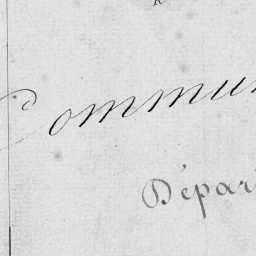 Commun
Dépar